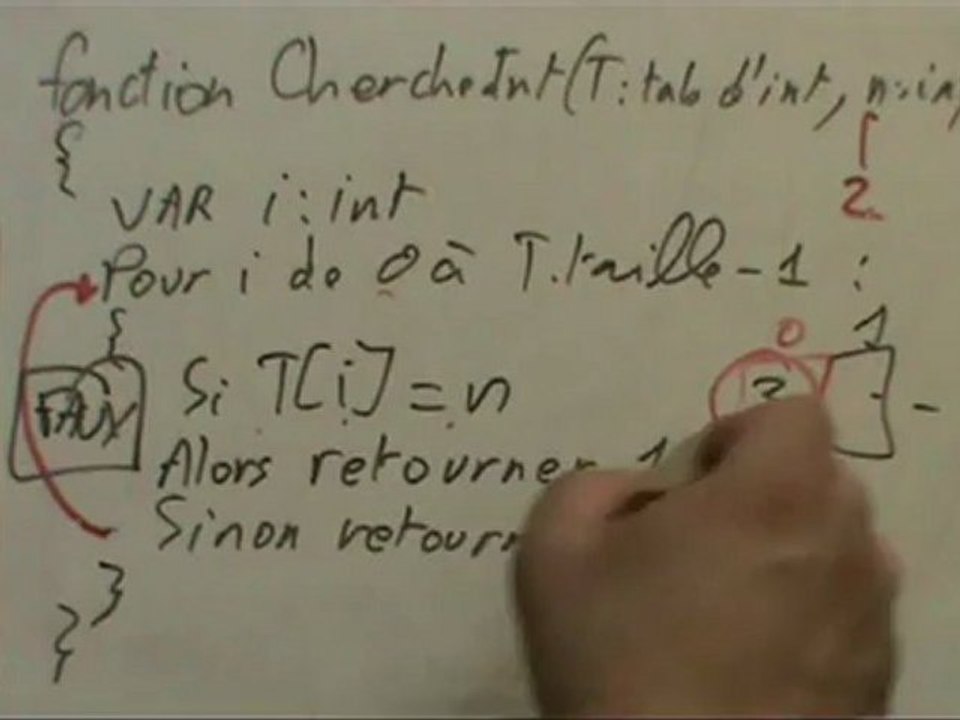 fonction ChercheInt(T: tab d'int, n:in
{
2
VAR i: int
Pour i de 0 à T.taille - 1 :
{
0 1
Si T[i] = n
FAUX
Alors retourner 1
Sinon retourn
}
}